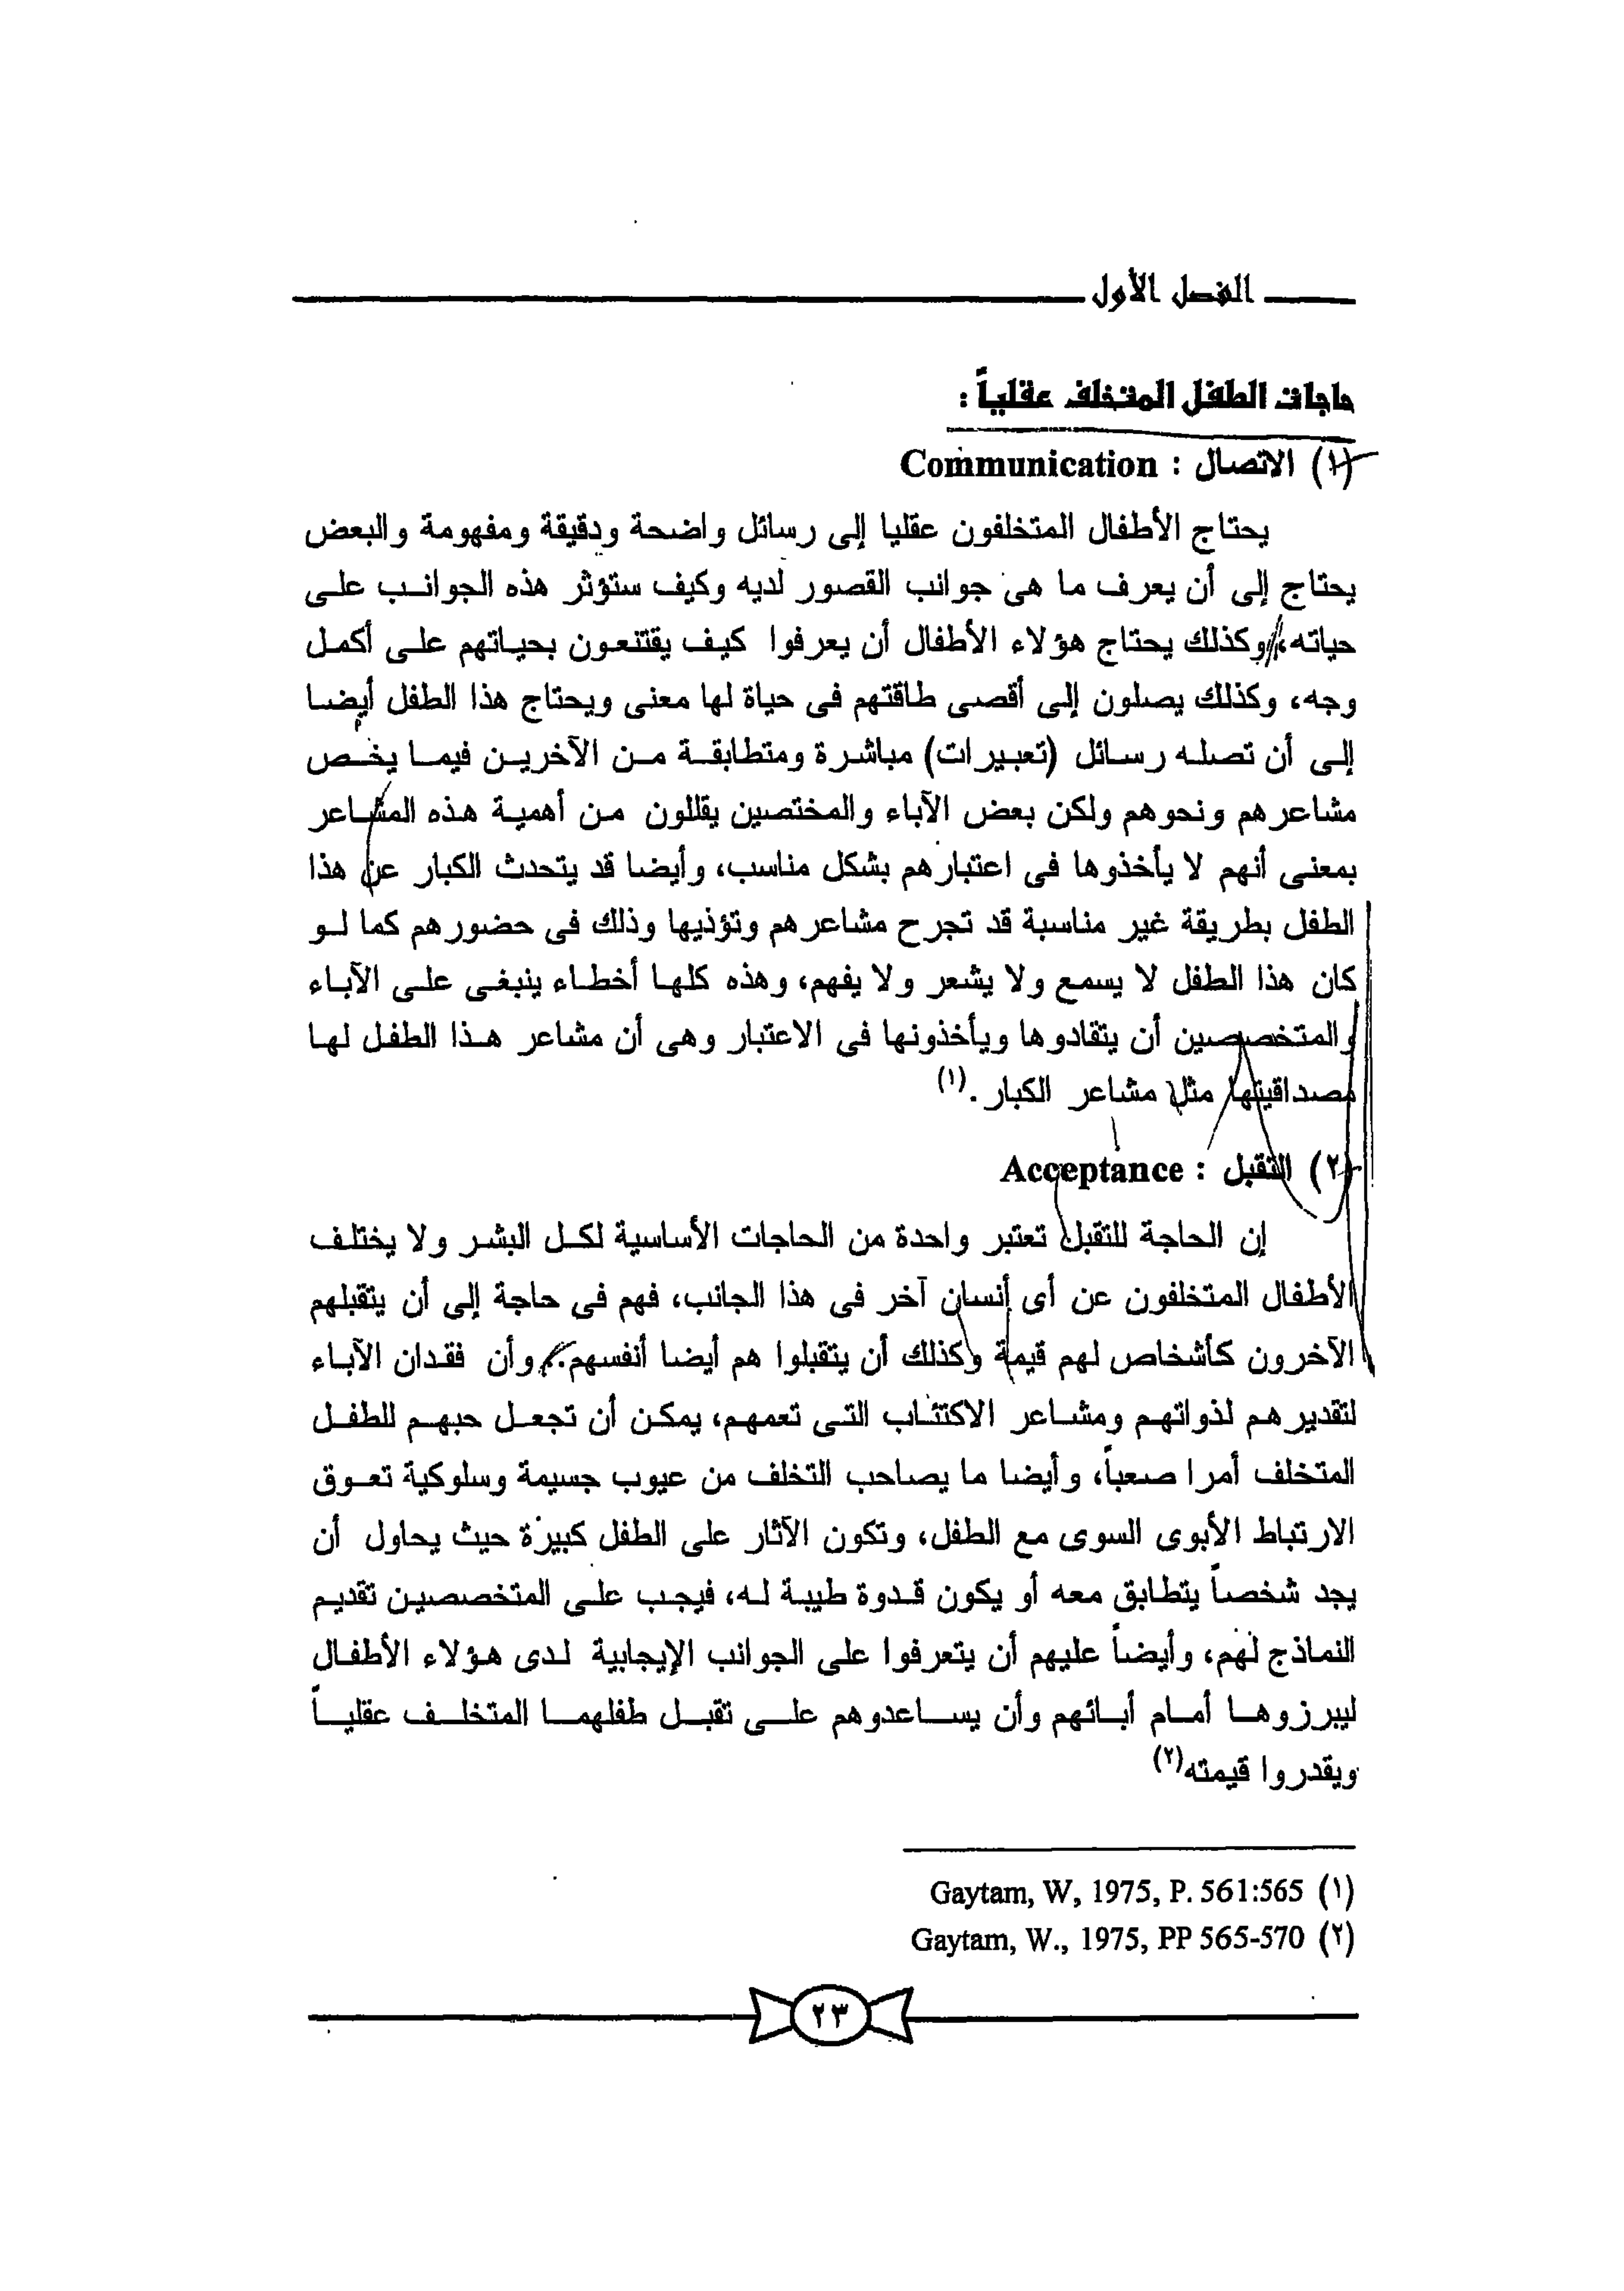 الفصل الأول
حاجات الطفل المتخلف عقلياً :
(١) الاتصال : Communication
يحتاج الأطفال المتخلفون عقليا إلى رسائل واضحة ودقيقة ومفهومة والبعض
يحتاج إلى أن يعرف ما هى جوانب القصور لديه وكيف ستؤثر هذه الجوانب على
حياته، وكذلك يحتاج هؤلاء الأطفال أن يعرفوا كيف يقتنعون بحياتهم على أكمل
وجه، وكذلك يصلون إلى أقصى طاقتهم فى حياة لها معنى ويحتاج هذا الطفل أيضا
إلى أن تصله رسائل (تعبيرات) مباشرة ومتطابقة من الآخرين فيما يخص
مشاعرهم ونحوهم ولكن بعض الآباء والمختصين يقللون من أهمية هذه المشاعر
بمعنى أنهم لا يأخذوها فى اعتبارهم بشكل مناسب، وأيضا قد يتحدث الكبار عن هذا
الطفل بطريقة غير مناسبة قد تجرح مشاعرهم وتؤذيها وذلك فى حضورهم كما لو
كان هذا الطفل لا يسمع ولا يشعر ولا يفهم، وهذه كلها أخطاء ينبغى على الآباء
والمتخصصين أن يتقادوها ويأخذونها فى الاعتبار وهى أن مشاعر هذا الطفل لها
مصداقيتها مثل مشاعر الكبار.(١)
(٢) التقبل : Acceptance
إن الحاجة للتقبل تعتبر واحدة من الحاجات الأساسية لكل البشر ولا يختلف
الأطفال المتخلفون عن أى أنسان آخر فى هذا الجانب، فهم فى حاجة إلى أن يتقبلهم
الآخرون كأشخاص لهم قيمة وكذلك أن يتقبلوا هم أيضا أنفسهم.. وأن فقدان الآباء
لتقديرهم لذواتهم ومشاعر الاكتئاب التى تعمهم، يمكن أن تجعل حبهم للطفل
المتخلف أمرا صعباً، وأيضا ما يصاحب التخلف من عيوب جسيمة وسلوكية تعوق
الارتباط الأبوى السوى مع الطفل، وتكون الآثار على الطفل كبيرة حيث يحاول أن
يجد شخصاً يتطابق معه أو يكون قدوة طيبة له، فيجب على المتخصصين تقديم
النماذج لهم، وأيضاً عليهم أن يتعرفوا على الجوانب الإيجابية لدى هؤلاء الأطفال
ليبرزوها أمام أبائهم وأن يساعدوهم على تقبل طفلهما المتخلف عقلياً
ويقدروا قيمته(٢)
(١) Gaytam, W, 1975, P. 561:565
(٢) Gaytam, W., 1975, PP 565-570
٢٣